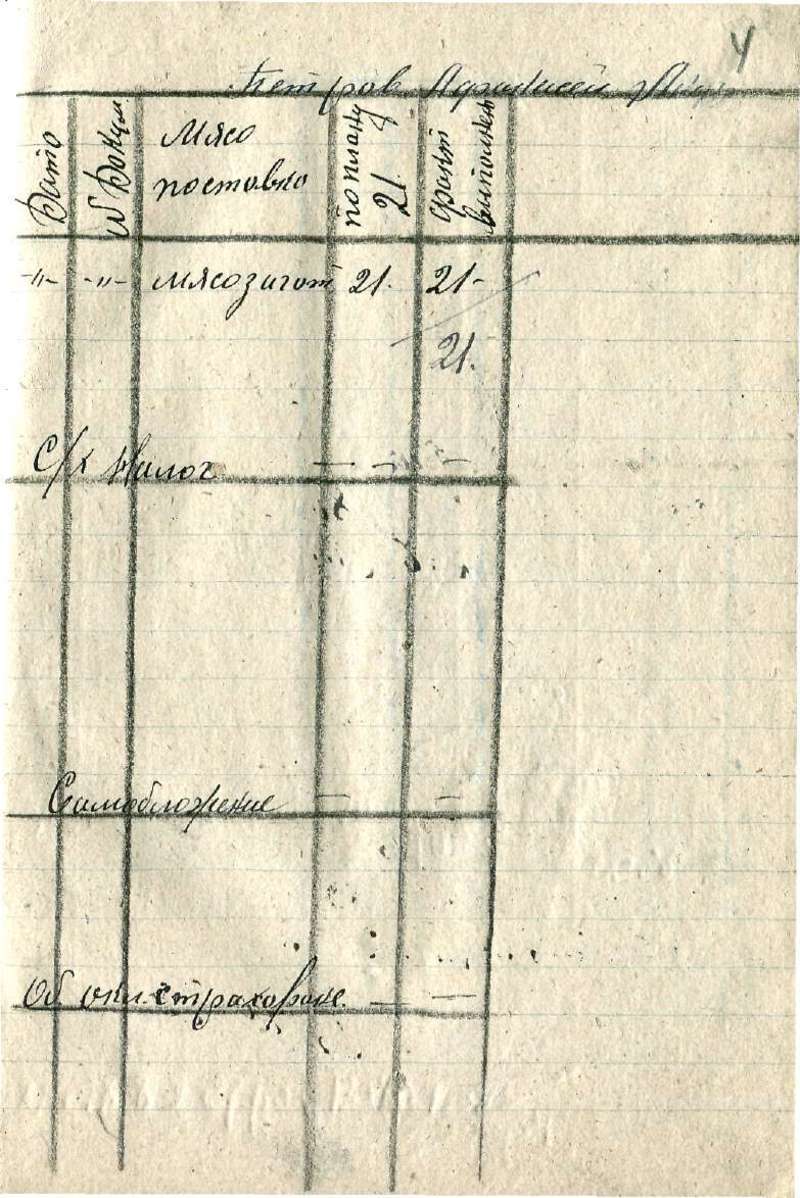 4
Петров
Дато
№ Докум.
Мясо
поставка
по плану
21.
факт
выполнен
-"- -"- мясозагот 21. 21-
21.
С/х Налог — — —
Самобложение — —
Об окл. страхован. — —